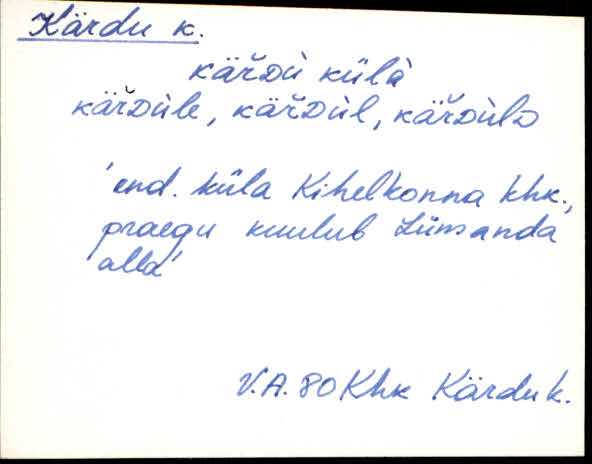 Kärdu k.
κäřᴅù külà
κäřᴅùle, κäřᴅùl, κäřᴅùlᴅ
'end. küla Kihelkonna khk.,
praegu kuulub Lümanda
alla'
V.A. 80 Khk Kärdu k.